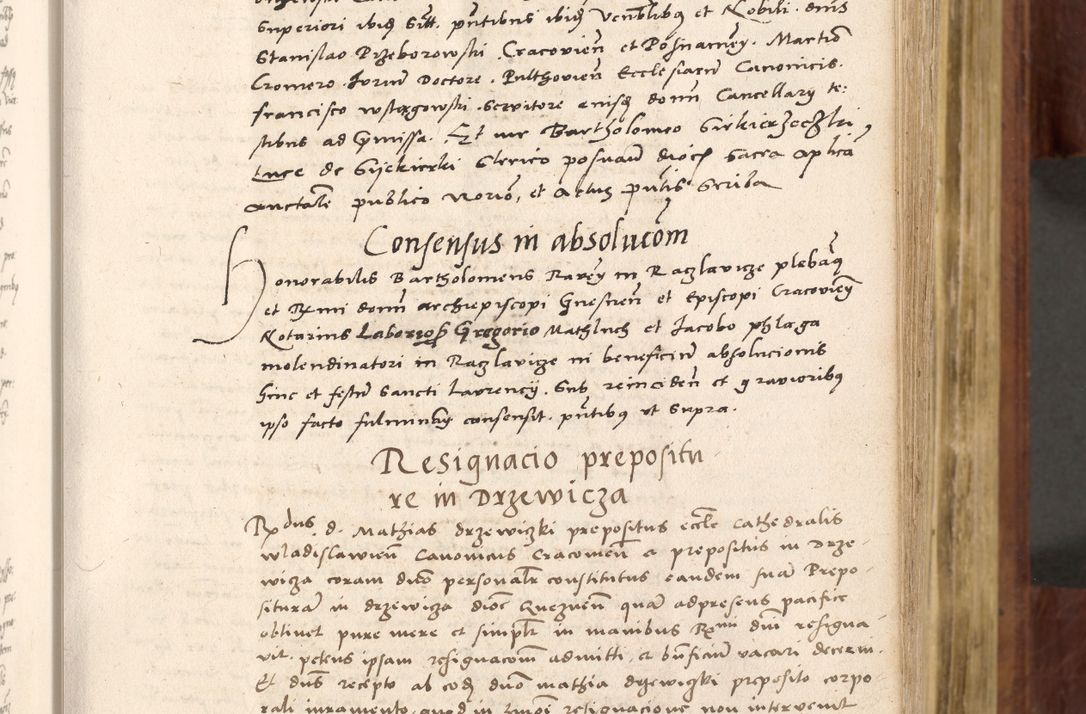 superiori ibidē sūt. pn̄tibus ibidē Venlibus et Nobili. dnis
Stanislao Przeborowski. Cracovien̄ et Posnanien̄. Martino
Cromero. Iurium Doctore. Pulthovien̄ Ecclesiarum Canonicis.
Francisco wstzgowski. Servitore eiusdē domn̄ Cancellary te:
stibus ad p̄missa. Et me Bartholomeo
de Clerico posnan̄ dioc̄ sacra aplica
auctate publico Notario, et Actus pn̄tis Scriba
Consensus in absolucōm
Honorabilis Bartholomeus Rarey in Raczlavicze plebanus
et Rmi domn̄ archiepiscopi Gnesnen̄ et Episcopi Cracovien̄
Notarius Gregorio Mathluch et Jacobo phlaga
molendinatori in Raczlavicze in beneficiū absolucionis
hinc et festū Sancti Laurencij. Sub reinciden̄ et gravioribus
ipso facto fulminan̄ consensit. pn̄tibus ut Supra.
Resignacio prepositu
re in Drzewicza
Rdus d. Mathias drzewiczki prepositus eccle Cathedralis
Wladislawien̄ Canonicus Cracovien̄ a prepositus in Drze-
wicza coram dn̄o personalr constitutus eandem suā Prepo-
siturā in drzewicza dioc̄ Gneznen̄ quā ad presens pacifice
obtinet pure mere et simplr in manibus Rmi dni resigna-
vit. petens ipsam resignacōm admitti, et bnficiū vacari decerni.
Et dn̄s recepto ab eodē dn̄o mathia drzewiczki preposito corpo
rali iuramento, quod in resignacione non intervenit